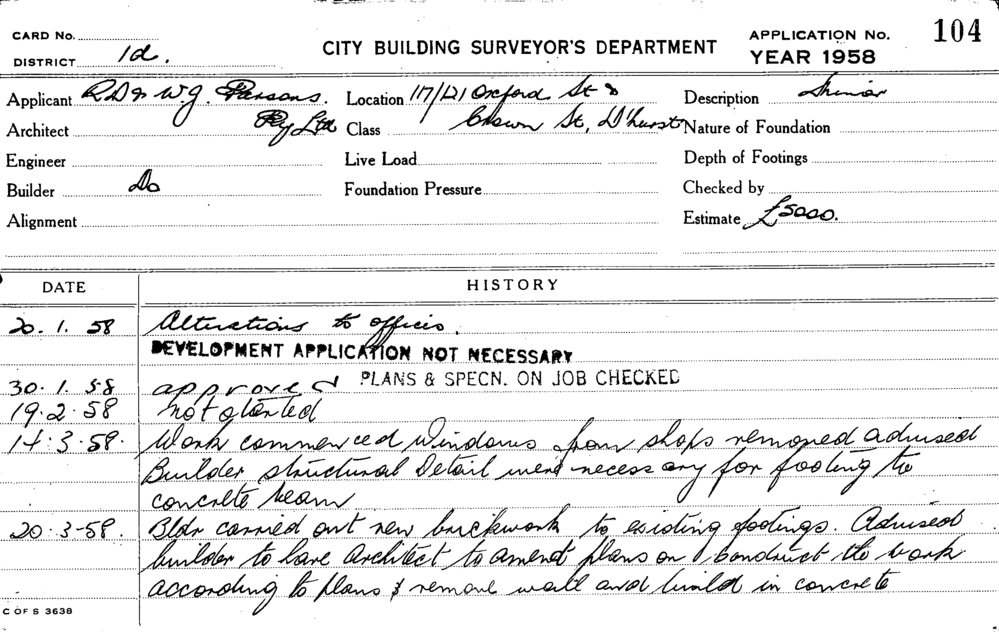 CARD No.
DISTRICT 1d.
CITY BUILDING SURVEYOR'S DEPARTMENT
APPLICATION No. 104
YEAR 1958
Applicant R.D & W.J. Parsons. Pty Ltd
Location 117/121 Oxford St & Crown St, D'hurst
Description
Architect
Class
Nature of Foundation
Engineer
Live Load
Depth of Footings
Builder Do
Foundation Pressure
Checked by
Alignment
Estimate £5000.
DATE HISTORY
20. 1. 58 Alterations to offices.
DEVELOPMENT APPLICATION NOT NECESSARY
30. 1. 58 approved PLANS & SPECN. ON JOB CHECKED
19. 2. 58 not started
14. 3. 58. Work commenced Windows from shops removed advised
Builder structural Detail were necessary for footing to
concrete beam
20. 3-58. Bldr carried out new brickwork to existing footings. Advised
builder to have architect to amend plans or conduct the work
according to plans & remove wall and build in concrete
C OF S 3638